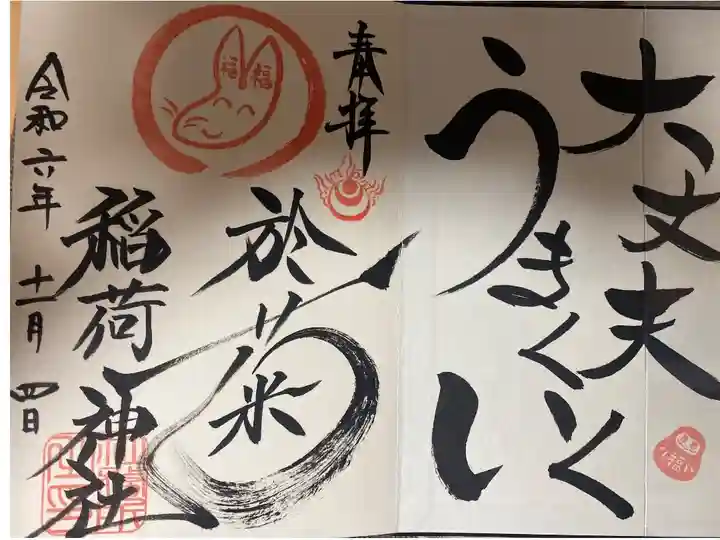 大丈夫
うまくいく
い
奉拝
於菊
稲荷神社
令和六年
十一月四日
福
福
福